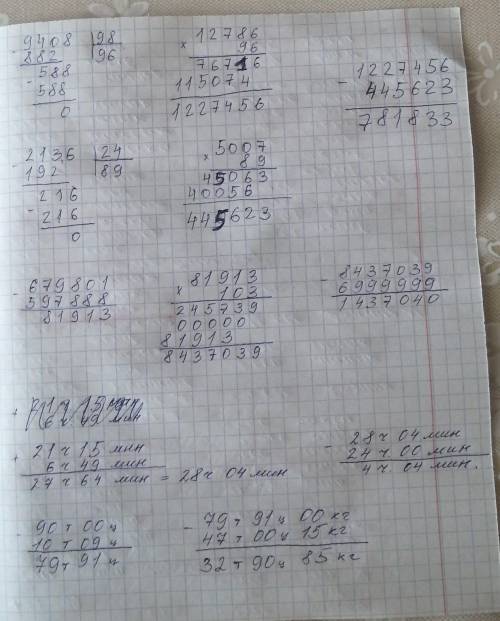 - 9408 | 98
882 | 96
- 588
588
0
× 12786
96
76716
115074
1227456
- 1227456
445623
781833
- 2136 | 24
192 | 89
- 216
216
0
× 5007
89
45063
40056
445623
- 679801
597888
81913
× 81913
103
245739
00000
81913
8437039
- 8437039
6999999
1437040
+
+ 21 ч 15 мин
6 ч 49 мин
27 ч 64 мин = 28 ч 04 мин
- 28 ч 04 мин
24 ч 00 мин
4 ч 04 мин.
- 90 т 00 ц
10 т 09 ц
79 т 91 ц
- 79 т 91 ц 00 кг
47 т 00 ц 15 кг
32 т 90 ц 85 кг